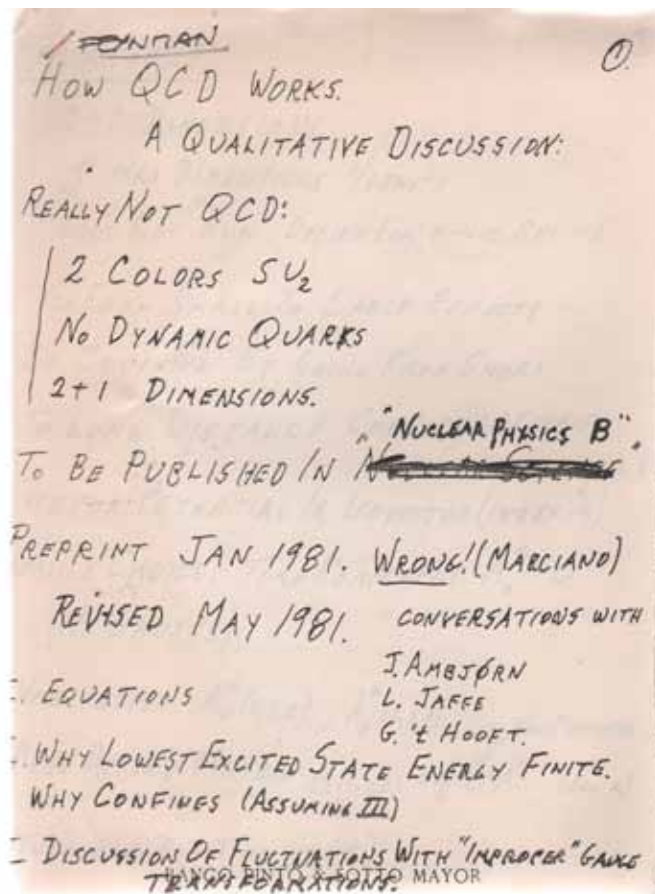 FEYNMAN
①
HOW QCD WORKS.
A QUALITATIVE DISCUSSION:
REALLY NOT QCD:
2 COLORS SU₂
NO DYNAMIC QUARKS
2+1 DIMENSIONS.
"NUCLEAR PHYSICS B"
TO BE PUBLISHED IN
PREPRINT JAN 1981. WRONG! (MARCIANO)
REVISED MAY 1981. CONVERSATIONS WITH
J. AMBJØRN
I. EQUATIONS L. JAFFE
G. 't HOOFT.
I. WHY LOWEST EXCITED STATE ENERGY FINITE.
WHY CONFINES (ASSUMING III)
I DISCUSSION OF FLUCTUATIONS WITH "IMPROPER" GAUGE
TRANSFORMATIONS.
BANCO PINTO & SOTTO MAYOR